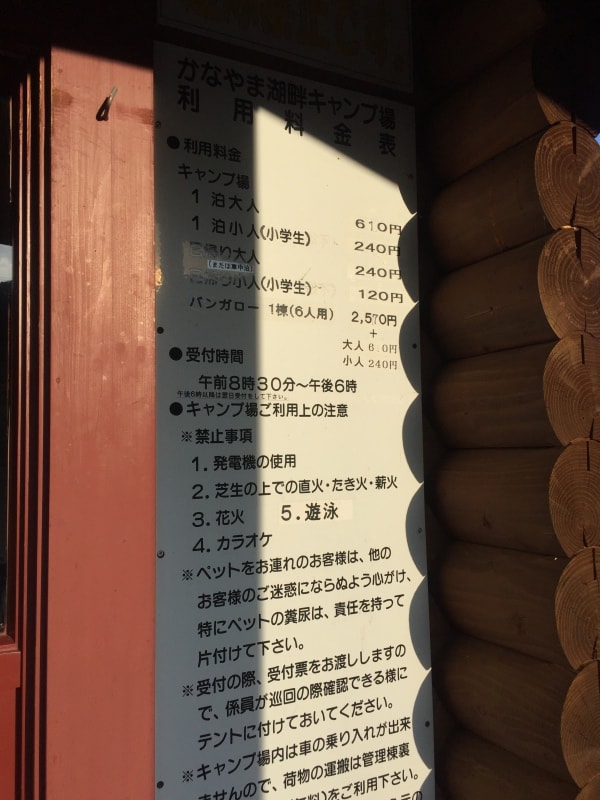 かなやま湖畔キャンプ場
利用料金表
●利用料金
キャンプ場
1 泊大人 610円
1 泊小人(小学生) 240円
日帰り大人 240円
(または車中泊)
日帰り小人(小学生) 120円
バンガロー 1棟(6人用) 2,570円
+
大人 6.0円
小人 240円
●受付時間
午前8時30分～午後6時
午後6時以降は翌日受付をして下さい。
●キャンプ場ご利用上の注意
※禁止事項
1.発電機の使用
2.芝生の上での直火・たき火・薪火
3.花火 5.遊泳
4.カラオケ
※ペットをお連れのお客様は、他の
お客様のご迷惑にならぬよう心がけ、
特にペットの糞尿は、責任を持って
片付けて下さい。
※受付の際、受付票をお渡ししますの
で、係員が巡回の際確認できる様に
テントに付けておいてください。
※キャンプ場内は車の乗り入れが出来
ませんので、荷物の運搬は管理棟裏
料)をご利用下さい。